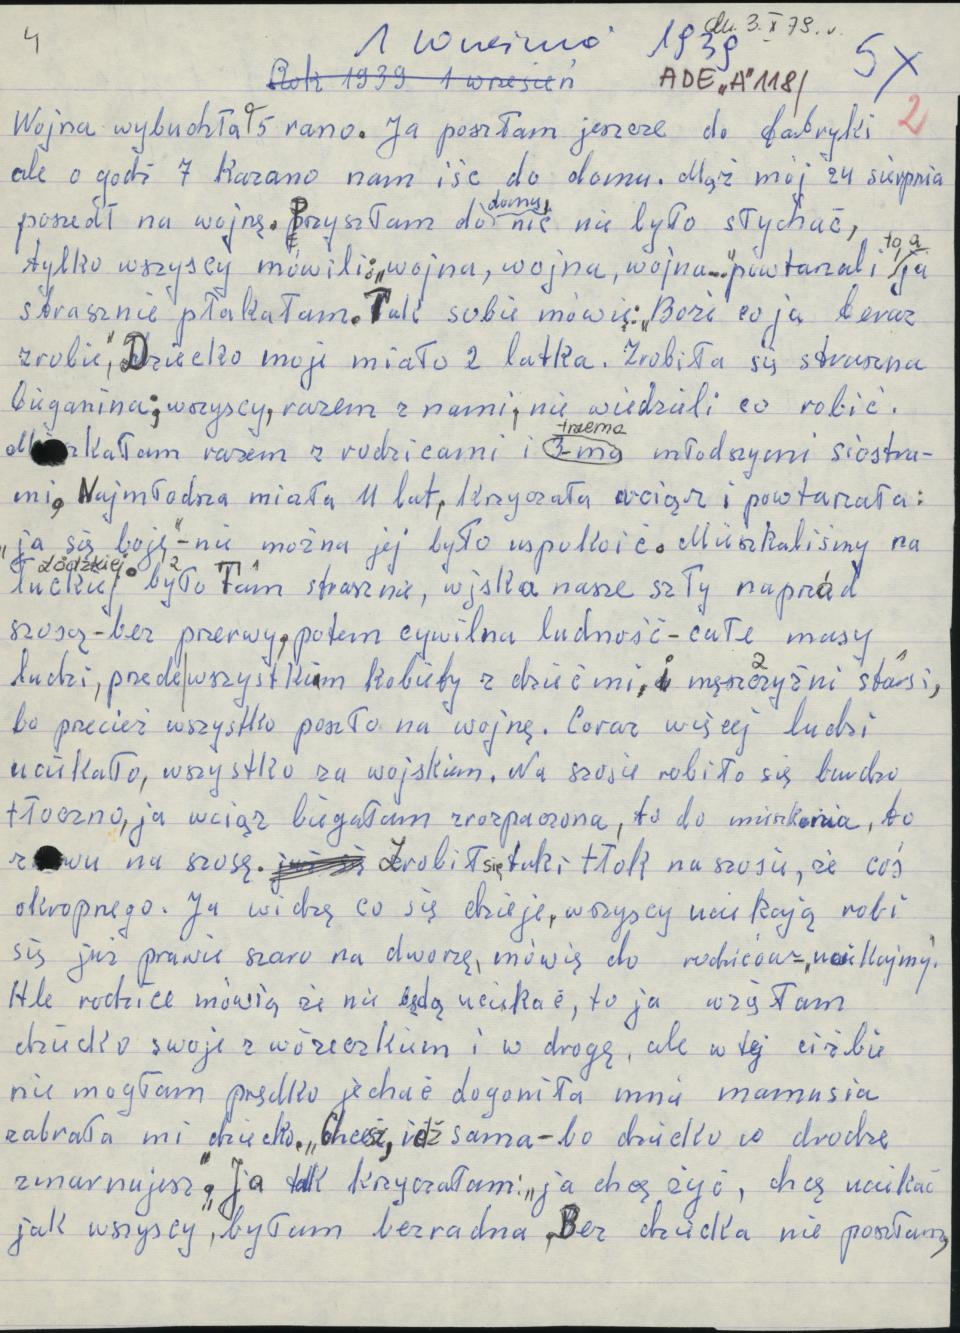 4
dn. 3. X 79. r.
1 wrzesień 1939
5x
Rok 1939 1 wrzesień
ADE„A"118/
2
Wojna wybuchła o 5 rano. Ja poszłam jeszcze do fabryki
ale o godz 7 kazano nam iść do domu. Mąż mój 24 sierpnia
poszedł na wojnę. Przyszłam do domu, nic nie było słychać,
tylko wszyscy mówili: „wojna, wojna, wojna..." powtarzali to, a ja
strasznie płakałam. Tak sobie mówię: „Boże co ja teraz
zrobie", Dziecko moje miało 2 latka. Zrobiła się straszna
bieganina; wszyscy, razem z nami, nie wiedzieli co robić.
Mieszkałam razem z rodzicami i 3-ma trzema młodszymi siostra-
mi, Najmłodsza miała 11 lat, krzyczała wciąż i powtarzała:
„ja się boję" - nie można jej było uspokoić. Mieszkaliśmy na
Łódzkiej
łuckiej. było Tam strasznie, wjska nasze szły naprád
szosą - bez przerwy, potem cywilna ludność - całe masy
ludzi, przede|wszystkim kobiety z dziećmi, i męszczyźni starsi,
bo przecież wszystko poszło na wojnę. Coraz więcej ludzi
uciekało, wszystko za wojskiem. Na szosie robiło się bardzo
tłoczno, ja wciąż biegałam zrozpaczona, to do mieszkania, to
znowu na szosę. Zrobił się taki tłok na szosie, że coś
okropnego. Ja widzę co się dzieje, wszyscy uciekają robi
się już prawie szaro na dworzę, mówię do rodziców - „uciekajmy".
Ale rodzice mówią że nie będą uciekać, to ja wzięłam
dziecko swoje z wózeczkiem i w drogę, ale w tej ciżbie
nie mogłam prędko jechać dogoniła mnie mamusia
zabrała mi dziecko. „Chcesz, idź sama - bo dziecko w drodze
zmarnujesz", Ja tak krzyczałam: „ja chcę żyć, chcę uciekać
jak wszyscy, byłam bezradna, Bez dziecka nie poszłam,